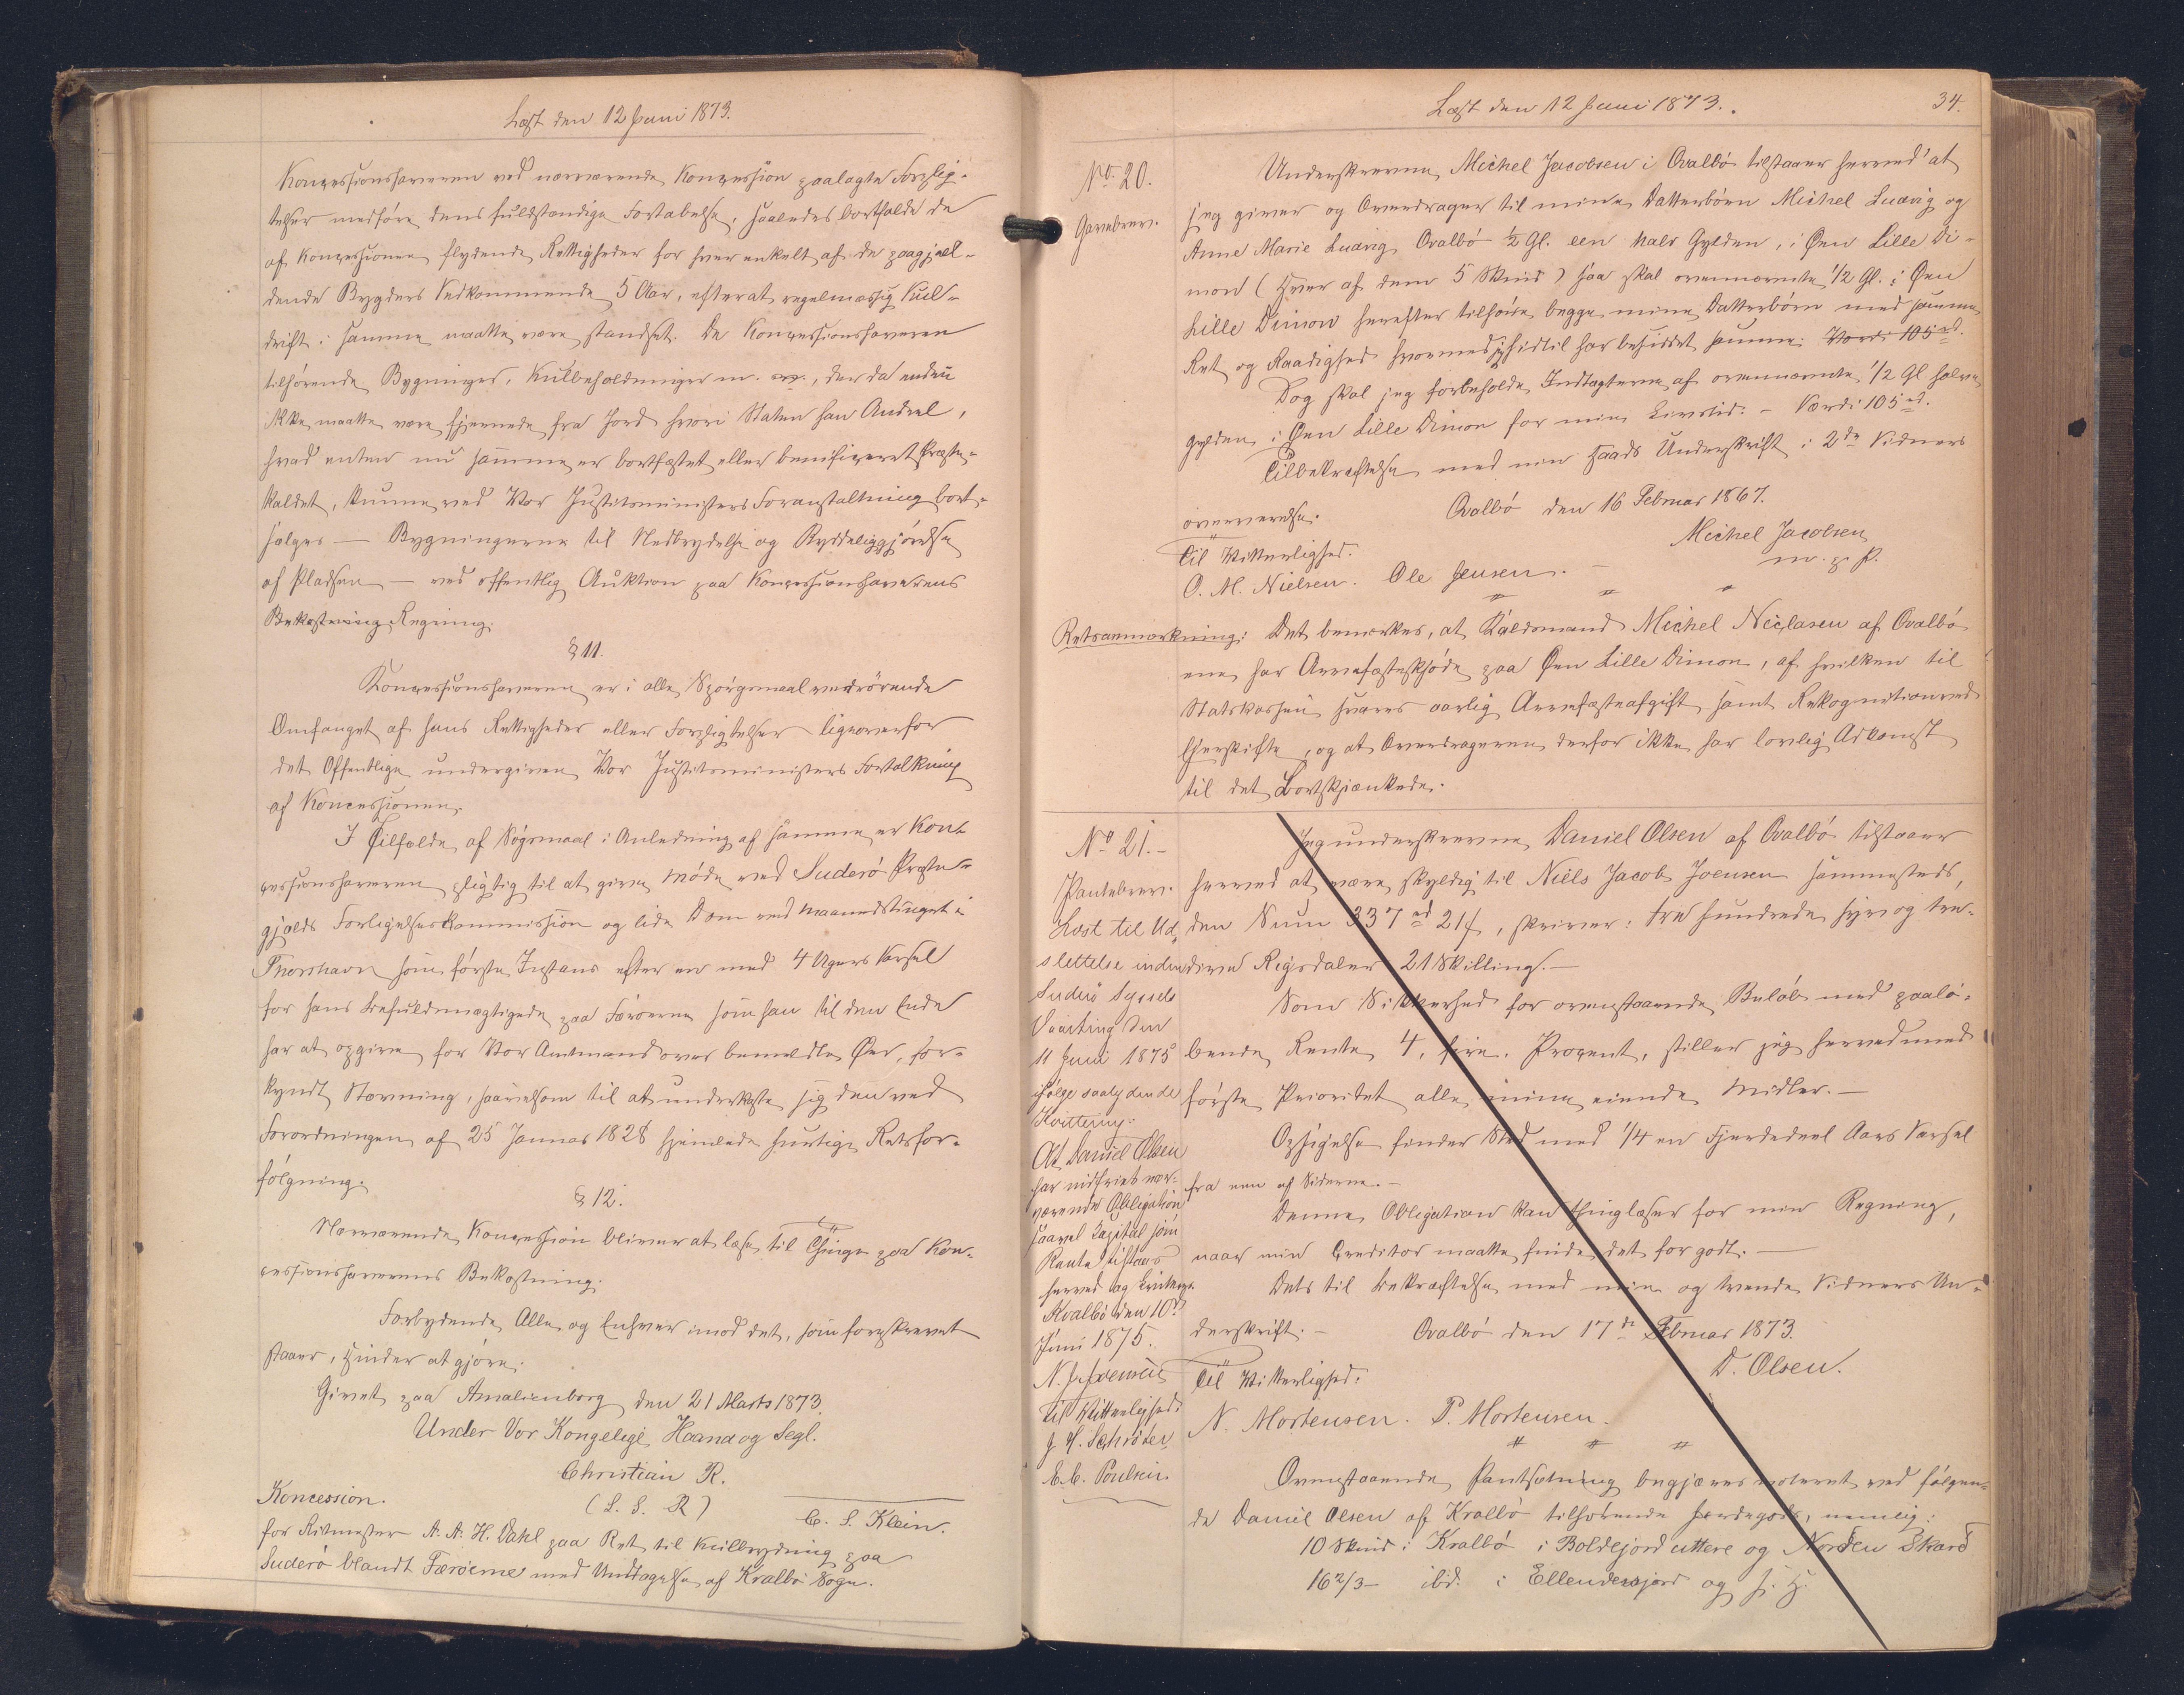 Læst den 12 Juni 1873.
Koncessionshaveren ved nærværende Koncession paalagte Forplig-
telser medføre dens fuldstændige Fortabelse, saaledes bortfalde de
af Koncessionen flydende Rettigheder for hver enkelt af de paagjæl-
dende Bygders Vedkommende 5 Aar, efterat regelmæssig Kul-
drift i samme maatte være standset. De Koncessionshaveren
tilhørende Bygninger, Kulbeholdninger m. v., der da endnu
ikke maatte være fjernede fra Jord hvori Staten har Andeel,
hvad enten nu samme er bortfæstet eller beneficeret Præste-
kaldet, kunne ved Vor Justitsministers Foranstaltning bort-
sælges — Bygningerne til Nedbrydelse og Ryddeliggjørelse
af Pladsen — ved offentlig Auktion paa Koncessionshaverens
Bekostning Regning.
§ 11.
Koncessionshaveren er i alle Spørgsmaal vedrørende
Omfanget af hans Rettigheder eller Forpligtelser ligeoverfor
det Offentlige undergiven Vor Justitsministers Fortolkning
af Koncessionen.
I Tilfælde af Søgsmaal i Anledning af samme er Kon-
cessionshaveren pligtig til at give Møde ved Suderø Præste-
gjælds Forligelseskommission og lide Dom ved Maanedstinget i
Thorshavn som første Instans efter en med 4 Ugers Varsel
for hans Befuldmægtigede paa Færøerne som han til den Ende
har at opgive for Vor Amtmand over bemeldte Øer, for-
kyndt Stævning, saavelsom til at underkaste sig den ved
Forordningen af 25 Januar 1828 hjemlede hurtige Retsfor-
følgning.
§ 12.
Nærværende Koncession bliver at læse til Thinge paa Kon-
cessionshaverens Bekostning.
Forbydende Alle og Enhver imod det, som foreskrevet
staaer, Hinder at gjøre.
Givet paa Amalienborg den 21 Marts 1873.
Under Vor Kongelige Haand og Segl.
Christian R.
(L. S. R)
C. S. Klein.
Koncession.
for Ritmester A. A. H. Dahl paa Ret til Kulbrydning paa
Suderø blandt Færøerne med Undtagelse af Kvalbø Sogn.
Læst den 12 Juni 1873.
34.
No. 20.
Gavebrev.
Underskrevne Michel Jacobsen i Qvalbø tilstaaer herved at
jeg giver og Overdrager til mine Datterbørn Michel Ludvig og
Anne Marie Ludvig Qvalbø ½ Gl. een halv Gylden, i Øen Lille Di-
mon (Hver af dem 5 Skind) saa skal ovennævnte 1/2 Gl. i Øen
Lille Dimon herefter tilhøre begge mine Datterbørn med samme
Ret og Raadighed hvormed jeg hidtil har besiddet samme. Værdi 105 rd.
Dog skal jeg forbeholde Indtægterne af ovennævnte 1/2 Gl halve
gylden i Øen Lille Dimon for min Livstid. - Værdi 105 rd.
Tilbekræftelse med min Haands Underskrift i 2de Vidners
overværelse.
Qvalbø den 16 Februar 1867.
Michel Jacobsen
m. p. P.
Til Vitterlighed.
O. M. Nielsen. Ole Jensen. -
Retsanmærkning: Det bemærkes, at Kaldsmand Michel Niclasen af Qvalbø
ene har Arvefæsteskjøde paa Øen Lille Dimon, af hvilken til
Statskassen svares aarlig Arvefæsteafgift samt Rekognition ved
Eierskifte, og at Overdrageren derfor ikke har lovlig Adkomst
til det Bortskjænkede.
No 21.-
Pantebrev.
Læst til Ud-
slettelse inden
Suderø Syssels
Vaarting den
11 Juni 1875
ifølge saalydende
Kvittering:
At Daniel Olsen
har indfriet nær-
værende Obligation
saavel Kapital som
Rente tilstaaes
herved og kvitteres.
Kvalbø den 10de
Juni 1875.
N. J. Joensen
Til Vitterlighed:
J. H. Schrøter
E. C. Poulsen.
Jeg underskrevne Daniel Olsen af Qvalbø tilstaaer
herved at være skyldig til Niels Jacob Joensen sammesteds,
den Sum 337 rd 21 s, skriver: tre hundrede syv og tre-
dive Rigsdaler 21 Skilling. —
Som Sikkerhed for ovenstaaende Beløb med paalø-
bende Rente 4, fire. Procent, stiller jeg herved med
første Prioritet alle mine eiende Midler. —
Opsigelse finder Sted med 1/4 en Fjerdedeel Aars Varsel
fra een af Siderne. -
Denne Obligation kan thinglæses for min Regning,
naar min Creditor maatte finde det for godt. —
Dets til Bekræftelse med min og tvende Vidners Un-
derskrift. -
Qvalbø den 17de Februar 1873.
D. Olsen.
Til Vitterlighed.
N. Mortensen. P. Mortensen.
Ovenstaaende Pantsætning begjæres noteret ved følgen-
de Daniel Olsen af Kvalbø tilhørende Jordegods, nemlig:
10 Skind i Kvalbø i Boldejord uttere og Norden Skard
16 2/3 — ibid. i Ellendesjord og f. H.